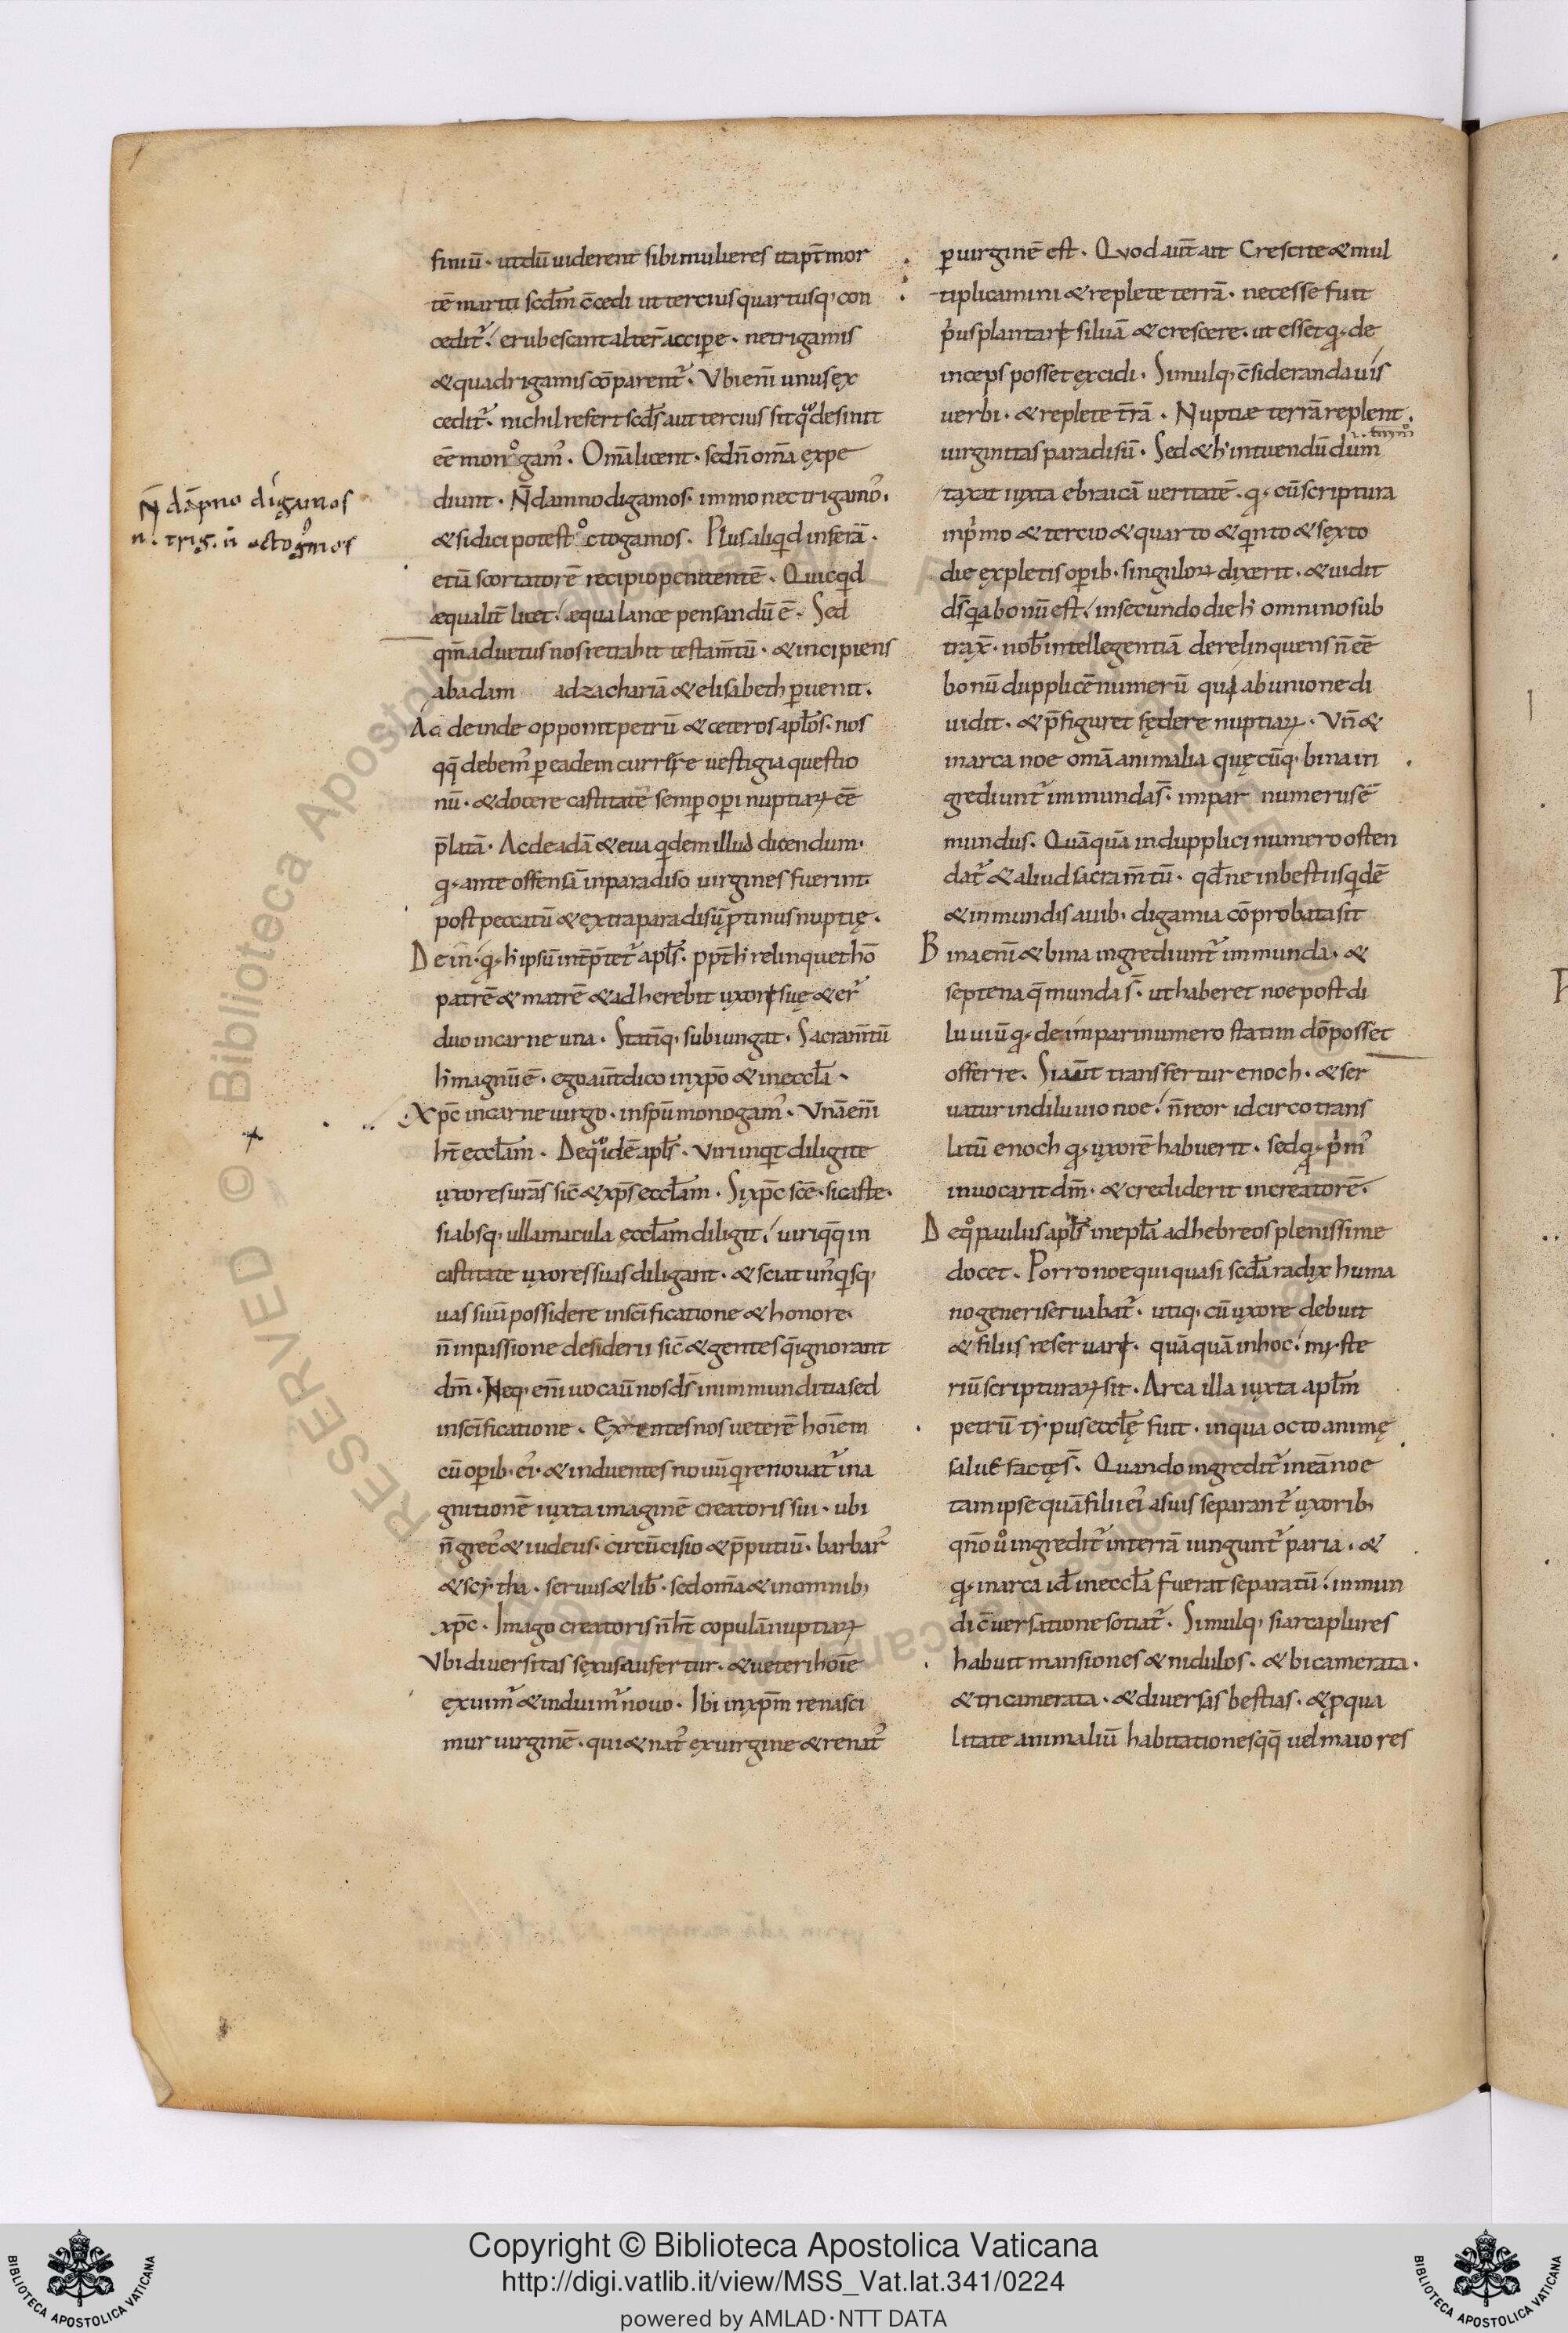 N̄ dāpno dígamos
n̄. trig. n̄ octogͦmos
siniū· ut dū uiderent sibi mulieres ita pt̄ mor
tē mariti scd̄m c̄cedi ut tercius quartusq; con
cedit᷑; erubescant alterā accipe· ne trigamis
& quadrigamis cōparent᷑· Vbi eni᷑ unus ex
cedit᷑· nichil refert scd̄s aut tercius sit q̊ desinit
eē monogam᷒· Om̄a licent· sed n̄ om̄a expe
diunt· N̄ damno digamos· immo nec trigamo᷒·
& si dici potest octogamos· Plus aliqd inferā·
etiā scortatorē recipio penitentē· Quicqd
æqualit̄ licet; æqua lance pensandū ē· Sed
qm̄ ad uetus nos retrahit testam̄tū· & incipiens
ab adam ad zachariā & elisabeth puenit·
Ac deinde opponit petrū & ceteros aplōs· nos
qq̄ debem᷒ p eadem currere uestigia questio
nū· & docere castitatē semp opi nuptiaꝝ eē
p̄latā· Ac de adā & eua qdem illud dicendum·
q· ante offensā in paradiso uirgines fuerint·
post peccatū & extra paradisū ptinus nuptię·
Dein· q· h ipsū int̄p̄tet᷑ apls̄· ppt̄ h relinquet hō
patrē & matrē & adherebit uxori suę & er̄
duo in carne una· Statīq; subiungat· Sacram̄tū
h magnū ē· ego aūt dico in xp̄o & in eccl̄a·
Xpc̄ in carne uirgo· in sp̄u monogam᷒· Vnā eni᷑
ht̄ eccl̄am· De q̊ idē apls̄· Viri inqt diligite
uxores urās sic̄ & xp̄s eccl̄am· Si xpc̄ scē· si caste·
si absq; ulla macula eccl̄am diligit; uiri qq̄ in
castitate uxores suas diligant· & sciat un᷒qsq;
uas suū possidere in scīficatione & honore·
n̄ in passione desiderii sic̄ & gentes q̄ ignorant
dm̄· Neq; eni᷑ uocauit nos ds̄ in inmunditia sed
in scīficatione· Exuentes nos ueterē hoīem
cū opib· ei᷒· & induentes nouū q renouat᷑ in a
gnitionē iuxta imaginē creatoris sui· ubi
n̄ grec᷒ & iudeus· circūcisio & p̄putiū· barbar᷒
& scytha· seruus & lib̄· sed om̄a & in omnib;
xpc̄· Imago creatoris n̄ ht̄ copulā nuptiaꝝ
Vbi diuersitas sexus aufertur· & ueteri hoīe
exuim᷑ & induim᷑ nouo· Ibi in xpm̄ renasci
mur uirginē· qui & nat᷒ ex uirgine & renat᷒
p uirginē est· Quod aūt ait Crescite & mul
tiplicamini & replete terrā· necesse fuit
p̓us plantare siluā & crescere· ut esset q· de
inceps posset excidi· Simulq; c̄sideranda uis
uerbi· & replete t̄rā· Nuptiæ terrā replent·
uirginitas paradisū· Sed & h intuendū dum
taxat iuxta ebraicā ueritatē· q· cū scriptura
in p̓mo & tercio & quarto & qnto & sexto
die expletis opib· singuloꝝ dixerit· & uidit
ds̄ qa bonū est; in secundo die h omnino sub
trax̄· nob̄ intellegentiā derelinquens n̄ eē
bonū dupplicē numerū qui ab unione di
uidit· & p̄figuret fędere nuptiaꝝ· Vn̄ &
in arca noe omā animalia quęcūq; bina in
grediunt᷑ inmunda s̄· impar numerus ē
mundus· Quāquā in dupplici numero osten
dat᷑ & aliud sacram̄tū· qd̄ ne in bestiis qdē
& inmundis auib· digamia cōprobata sit
Bina eni᷑ & bina ingrediunt᷑ inmunda· &
septena q̄ munda s̄· ut haberet noe post di
luuiū q· de impari numero statim dō posset
offerre· Si aūt transfertur enoch· & ser
uatur in diluuio noe; n̄ reor idcirco trans
litū enoch q· uxorē habuerit· sed q· p̓m᷒
inuocarit dm̄· & crediderit in creatorē·
De q̊ paulus apls̄ in eplā ad hebreos plenissime
docet· Porro noe qui quasi scd̄a radix huma
no generi seruabat᷑· utiq; cū uxore debuit
& filiis reseruari· quāquā in hoc; myste
riū scripturaꝝ sit· Arca illa iuxta aplm̄
petrū typus eccl̄ę fuit· in qua octo animę
saluę factę s̄· Quando ingredit᷑ in eā noe
tam ipse quā filii ei᷒ a suis separant᷑ uxorib;
qn̄o ů ingredit᷑ in terrā iungunt᷑ paria· &
q· in arca id̄ in eccl̄a fuerat separatū; in mun
di c̄uersatione sotiat᷑· Simulq; si arca plures
habuit mansiones & nidulos· & bicamerata·
& tricamerata· & diuersas bestias· & p qua
litate animaliū habitationes qq̄ uel maiores
Copyright © Biblioteca Apostolica Vaticana
http://digi.vatlib.it/view/MSS_Vat.lat.341/0224
powered by AMLAD·NTT DATA